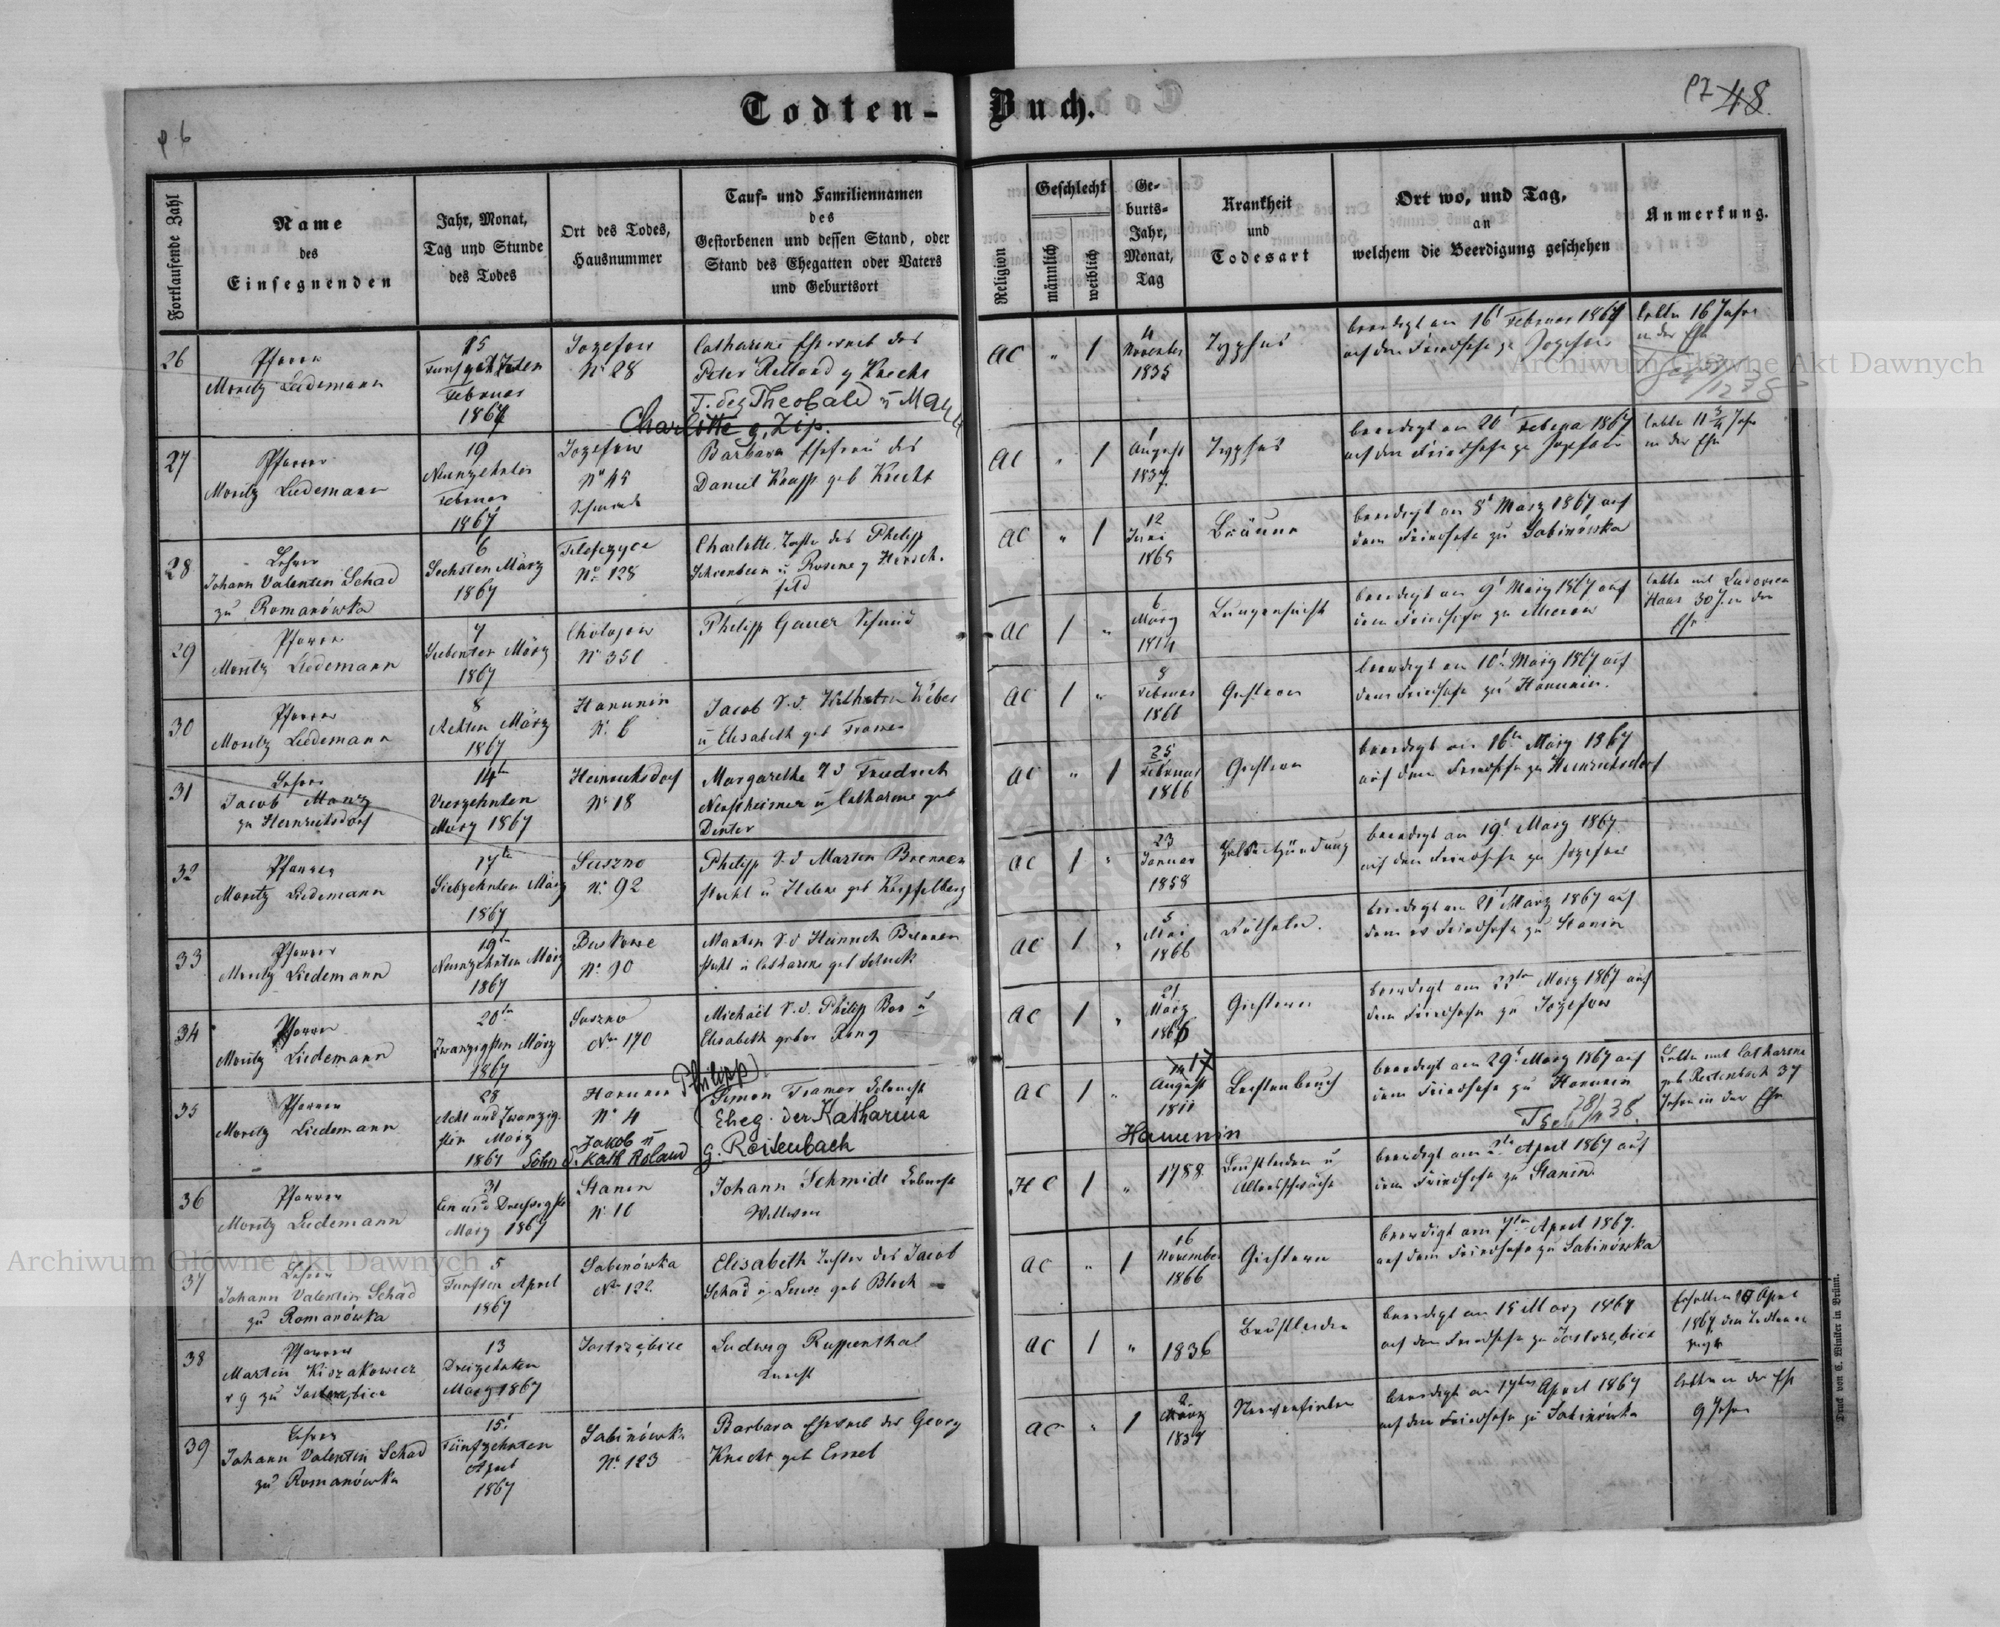 Todten-Buch.
p 6
p7 48
Fortlaufende Zahl
Name
des
Einsegnenden
Jahr, Monat,
Tag und Stunde
des Todes
Ort des Todes,
Hausnummer
Tauf- und Familiennamen
des
Gestorbenen und dessen Stand, oder
Stand des Ehegatten oder Vaters
und Geburtsort
Religion
Geschlecht
männlich
weiblich
Ge-
burts-
Jahr,
Monat,
Tag
Krankheit
und
Todesart
Ort wo, und Tag,
an
welchem die Beerdigung geschehen
Anmerkung.
26
Pfarrer
Moritz Liedemann
15
Februar
1867
Jozefow
N. 28
Catharine Eheweib des
Peter g Knecht
T. des Theobald u
Charlotte g. Zip.
AC " 1
4
November
1835
Typhus
beerdigt am 16t Februar 1867
auf dem Friedhofe zu Jozefow
lebte 16 Jahre
in der Ehe
27
Pfarrer
Moritz Liedemann
19
Neunzehnten
Februar
1867
Jozefow
No 45
Barbara Ehefrau des
Daniel Krapp geb Knecht
AC " 1
1
August
1837
Typhus
beerdigt am 20t Februar 1867
auf dem Friedhofe zu Jozefow
lebte 11 3/4 Jahr
in der Ehe
28
Lehrer
Johann Valentin Schad
zu Romanówka
6
Sechsten März
1867
No 128
Charlotte Tochter des Philipp
u Rosine g Hirsch-
feld
AC " 1
12
Juni
1865
Bräune
beerdigt am 8t März 1867 auf
dem Friedhofe zu Sabinówka
29
Pfarrer
Moritz Liedemann
7
Siebenten März
1867
Cholojow
N. 351
Philipp Gauer Schmid
AC 1 "
6
März
1814
Lungensucht
beerdigt am 9t März 1867 auf
dem Friedhofe zu
lebte mit Ludovica
Haas 30 J. in der
Ehe
30
Pfarrer
Moritz Liedemann
8
Achten März
1867
Hanunin
N. 6
Jacob S. d. Wilhelm Weber
u Elisabeth geb Tramer
AC 1 "
8
Februar
1866
Gichtern
beerdigt am 10t März 1867 auf
dem Friedhofe zu Hanunin.
31
Lehrer
Jacob Manz
zu Heinrichsdorf
14te
Vierzehnten
März 1867
Heinrichsdorf
N. 18
Margarethe T d Friedrich
u Catharine geb
Dinter
AC " 1
25
Februar
1866
Gichtern
beerdigt am 16te März 1867
auf dem Friedhofe zu Heinrichsdorf
32
Pfarrer
Moritz Liedemann
17te
Siebzehnten März
1867
Suszno
N. 92
Philipp S. d Martin Brennen
stuhl u Helene geb Kopfelberg
AC 1 "
23
Januar
1858
Halsentzündung
beerdigt am 19t. März 1867.
auf dem Friedhofe zu Jozefow
33
Pfarrer
Moritz Liedemann
19te
Neunzehnten März
1867
N. 90
Martin S. d Heinrich Brennen
stuhl u Catharine geb Schuck
AC 1 "
5
Mai
1866
Rötheln.
beerdigt am 21t März 1867 auf
dem Friedhofe zu Stanin
34
Pfarrer
Moritz Liedemann
20te
Zwanzigsten März
1867
Suszno
Nr 170
Michael S. d. Philipp Bos u
Elisabeth gebor Rang
AC 1 "
21
März
1866
Gichtern
beerdigt am 22ten März 1867 auf
dem Friedhofe zu Jozefow
35
Pfarrer
Moritz Liedemann
28
Acht und Zwanzig-
sten März
1867
Hanunin
N. 4
Philipp
Simon Tramer
Eheg. der Katharina
g. Reitenbach
Sohn d. Jakob u
Kath Roland
AC 1 "
17
August
1811
Hanunin
Leistenbruch
beerdigt am 29t. März 1867 auf
dem Friedhofe zu Hanunin
Lebte mit Catharine
geb Reitenbach 37
Jahre in der Ehe
36
Pfarrer
Moritz Liedemann
31
Ein und Dreißigste
März 1867
Stanin
N. 10
Johann Schmidt
Wittwer
HC 1 "
1788
Brustleiden u
Altersschwäche
beerdigt am 2te April 1867 auf
dem Friedhofe zu Stanin
37
Lehrer
Johann Valentin Schad
zu Romanówka
5
Fünften April
1867
Sabinówka
No 132
Elisabeth Tochter des Jacob
Schad u Louise geb Bloch
AC " 1
16
November
1866
Gichtern
beerdigt am 7ten April 1867.
auf dem Friedhofe zu Sabinówka
38
Pfarrer
Martin Kiszakowicz
r g zu Jastrzębice
13
Dreizehnten
März 1867
Jastrzębice
Ludwig Ruppenthal
Knecht
AC 1 "
1836
Brustleiden
beerdigt am 15 März 1867
auf dem Friedhofe zu Jastrzębice
39
Lehrer
Johann Valentin Schad
zu Romanówka
15t
Fünfzehnten
April
1867
Sabinówka
N. 123
Barbara Eheweib des Georg
Knecht geb Ensel
AC " 1
2
März
1837
Nervenfieber
beerdigt am 17ten April 1867
auf dem Friedhofe zu Sabinówka
lebte in der Ehe
9 Jahre
Druck von C. Winiker in Brünn.
Archiwum Główne Akt Dawnych
Archiwum Główne Akt Dawnych